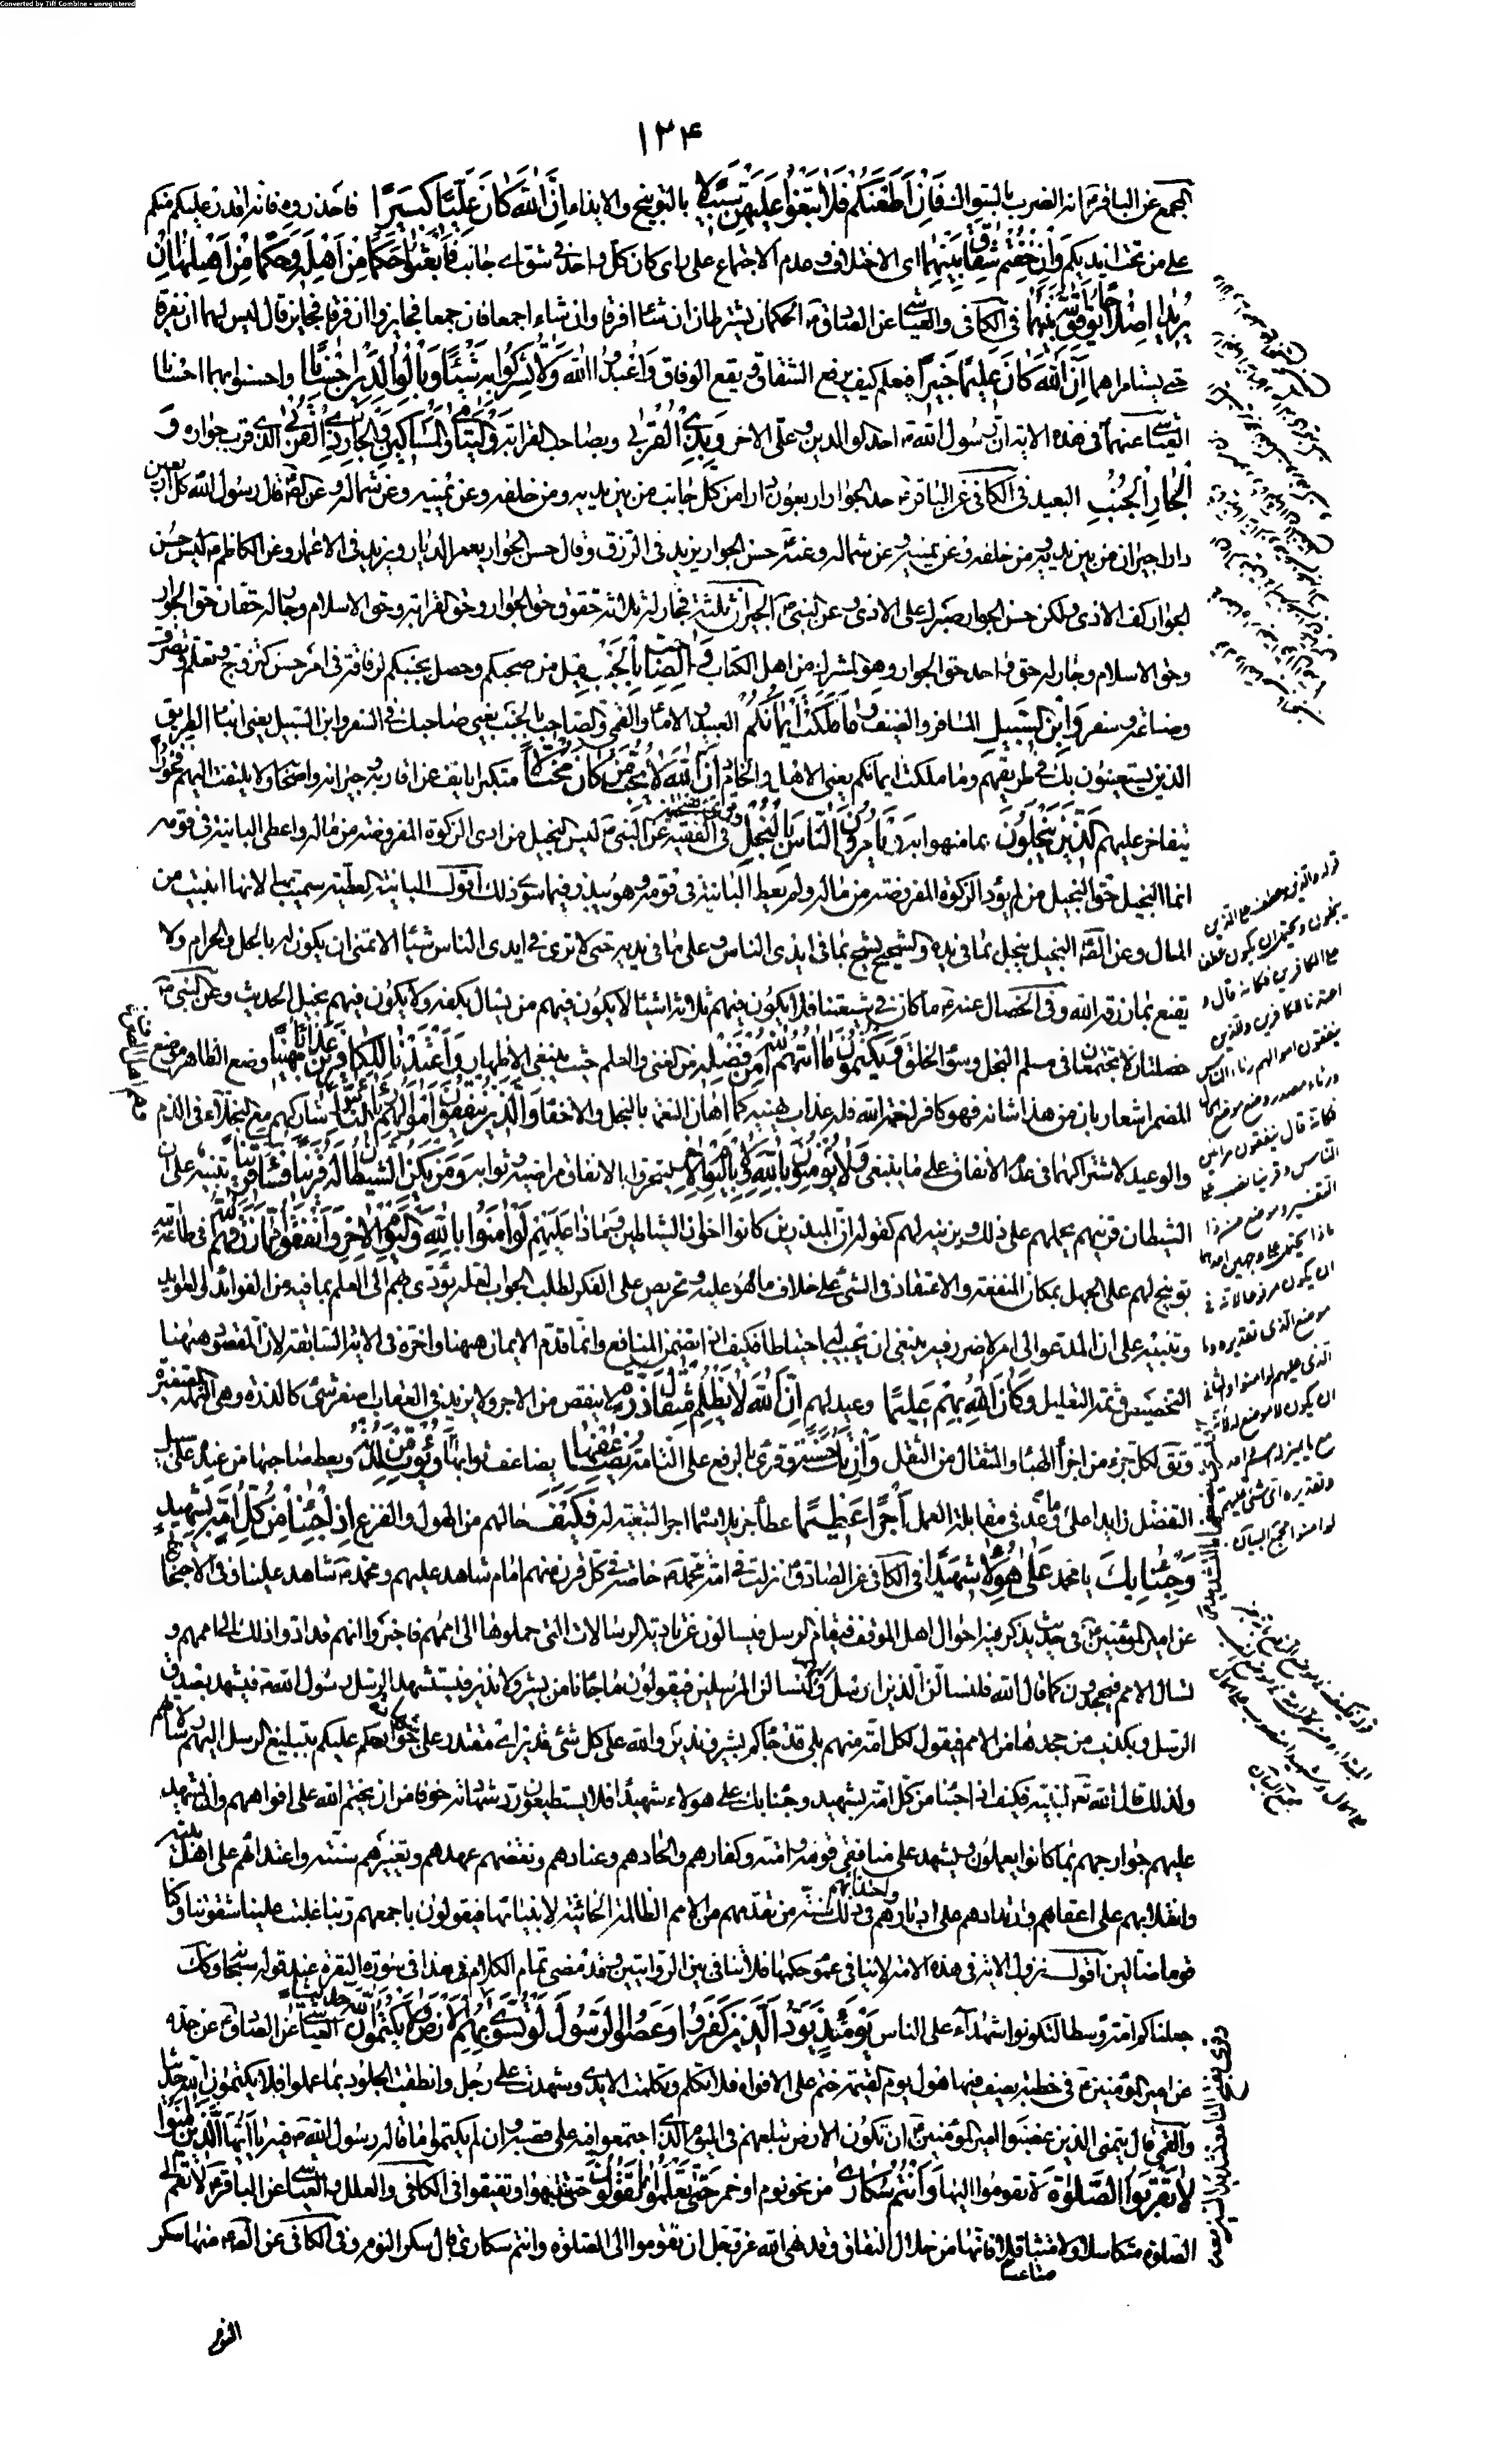 Converted by Tiff Combine - unregistered
١٣۴
المجمع عن الباقر ع انه الضرب بالسواك فَاِنْ اَطَعْنَكُمْ فَلَا تَبْغُوا عَلَيْهِنَّ سَبيلًا بالتوبيخ والايذاء اِنَّ اللّٰهَ كَانَ عَلِيًّا كَبيرًا فاحذروه فانه اقدر عليكم منكم
على من تحت ايديكم وَاِنْ خِفْتُمْ شِقَاقَ بَيْنِهِمَا اى الاختلاف وعدم الاجتماع على راى كان كل واحد فى شق اى جانب فَابْعَثُوا حَكَمًا مِنْ اَهْلِهِ وَحَكَمًا مِنْ اَهْلِهَا اِنْ
يُريدَا اِصْلَاحًا يُوَفِّقِ اللّٰهُ بَيْنَهُمَا فى الكافى والعياشى عن الصادق ع الحكمان يشترطان ان شاءا فرقا وان شاءا جمعا فان جمعا فجايز وان فرقا فجايز قال ليس لهما ان يفرقا
حتى يستامراهما اِنَّ اللّٰهَ كَانَ عَليمًا خَبيرًا فيعلم كيف يرفع الشقاق ويقع الوفاق وَاعْبُدُوا اللّٰهَ وَلَا تُشْرِكُوا بِهِ شَيْئًا وَبِالْوَالِدَيْنِ اِحْسَانًا واحسنوا بهما احسانا
العياشى عنهما ع فى هذه الاية ان رسول الله ص احد الوالدين وعلى الاخر وَبِذِى الْقُرْبٰى وبصاحب القرابة وَالْيَتَامٰى وَالْمَسَاكينِ وَالْجَارِ ذِى الْقُرْبٰى الذى قرب جواره وَ
الْجَارِ الْجُنُبِ البعيد فى الكافى عن الباقر ع حد الجوار اربعون دارا من كل جانب من بين يديه ومن خلفه وعن يمينه وعن شماله وعن الصادق ع قال رسول الله كل اربعين
دارا جيران من بين يديه ومن خلفه وعن يمينه وعن شماله وعنه حسن الجوار يزيد فى الرزق وقال حسن الجوار يعمر الديار ويزيد فى الاعمار وعن الكاظم ع ليس حسن
الجوار كف الاذى ولكن حسن الجوار صبرك على الاذى وعن النبى ص الجيران ثلثة فجار له ثلاثة حقوق حق الجوار وحق القرابة وحق الاسلام وجار له حقان حق الجوار
وحق الاسلام وجار له حق واحد حق الجوار وهو المشرك من اهل الكتاب وَالصَّاحِبِ بِالْجَنْبِ قيل من صحبكم وحصل بجنبكم لرفاقة فى امر حسن كتزوج وتعلم وتصرف
وصناعة وسفر وَابْنِ السَّبيلِ المسافر والضيف وَمَا مَلَكَتْ اَيْمَانُكُمْ العبيد والاماء والقمى والصاحب بالجنب يعنى صاحبك فى السفر وابن السبيل يعنى ابناء الطريق
الذين يستعينون بك فى طريقهم وما ملكت ايمانكم يعنى الاهل والخادم اِنَّ اللّٰهَ لَا يُحِبُّ مَنْ كَانَ مُخْتَالًا متكبرا يانف عن اقاربه وجيرانه واصحابه ولا يلتفت اليهم فَخُورًا
يتفاخر عليهم اَلَّذينَ يَبْخَلُونَ بما منحوا به وَيَاْمُرُونَ النَّاسَ بِالْبُخْلِ فى الفقيه عن النبى ص ليس البخيل من ادى الزكوة المفروضة من ماله واعطى البائنة فى قومه
انما البخيل حق البخيل من لم يؤد الزكوة المفروضة من ماله ولم يعط البائنة فى قومه وهو يبذر فيما سوى ذلك اقول البائنة العطية سميت بها لانها ابينت من
المال وعن الصادق ع البخيل يبخل بما فى يده والشحيح يشح بما فى ايدى الناس وعلى ما فى يديه حتى لا ترى فى ايدى الناس شيئا الا تمنى ان يكون له بالحل والحرام ولا
يقنع بما رزقه الله وفى الخصال عنه ع ما كان فى شيعتنا فلا يكون فيهم ثلاثة اشياء لا يكون فيهم من يسال بكفه ولا يكون فيهم بخيل الحديث وعن النبى ص
خصلتان لا تجتمعان فى مسلم البخل وسوء الخلق وَيَكْتُمُونَ مَا اٰتٰيهُمُ اللّٰهُ مِنْ فَضْلِهِ من الغنى والعلم حيث ينبغى الاظهار وَاَعْتَدْنَا لِلْكَافِرينَ عَذَابًا مُهينًا وضع الظاهر موضع
المضمر اشعارا بان من هذا شانه فهو كافر لنعمة الله فله عذاب يهينه كما اهان النعمة بالبخل والاخفاء وَالَّذينَ يُنْفِقُونَ اَمْوَالَهُمْ رِئَاءَ النَّاسِ شاركهم مع البخلاء فى الذم
والوعيد لاشتراكهما فى عدم الانفاق على ما ينبغى وَلَا يُؤْمِنُونَ بِاللّٰهِ وَلَا بِالْيَوْمِ الْاٰخِرِ ليتحروا بالانفاق مراضيه وثوابه وَمَنْ يَكُنِ الشَّيْطَانُ لَهُ قَرينًا فَسَاءَ قَرينًا تنبيه على ان
الشيطان قرينهم يحملهم على ذلك ويزينه لهم كقوله ان المبذرين كانوا اخوان الشياطين وَمَاذَا عَلَيْهِمْ لَوْ اٰمَنُوا بِاللّٰهِ وَالْيَوْمِ الْاٰخِرِ وَاَنْفَقُوا مِمَّا رَزَقَهُمُ اللّٰهُ فى طاعة الله
توبيخ لهم على الجهل بمكان المنفعة والاعتقاد فى الشئ على خلاف ما هو عليه وتحريص على الفكر لطلب الجواب لعله يؤدى بهم الى العلم بما فيه من الفوائد والعوايد
وتنبيه على ان المدعو الى امر لا ضرر فيه ينبغى ان يجيب اليه احتياطا فكيف اذا تضمن المنافع وانما قدم الايمان هيهنا واخره فى الاية السابقة لان المقصود هيهنا
التحصيص وثمة التعليل وَكَانَ اللّٰهُ بِهِمْ عَليمًا وعيد لهم اِنَّ اللّٰهَ لَا يَظْلِمُ مِثْقَالَ ذَرَّةٍ لا ينقص من الاجر ولا يزيد فى العقاب اصغر شئ كالذرة وهى النملة الصغيرة
ويق لكل جزء من اجزاء الهباء والمثقال من الثقل وَاِنْ تَكُ حَسَنَةً وقرئ بالرفع على التامة يُضَاعِفْهَا يضاعف ثوابها وَيُؤْتِ مِنْ لَدُنْهُ ويعط صاحبها من عنده على سبيل
التفضل زايدا على ما وعد فى مقابلة العمل اَجْرًا عَظيمًا عطاء جزيلا سماه اجرا لتبعيته له فَكَيْفَ حالهم من الهول والفزع اِذَا جِئْنَا مِنْ كُلِّ اُمَّةٍ بِشَهيدٍ
وَجِئْنَا بِكَ يا محمد عَلٰى هٰؤُلَاءِ شَهيدًا فى الكافى عن الصادق ع نزلت فى امة محمد ص خاصة فى كل قرن منهم امام شاهد عليهم ومحمد ص شاهد علينا وفى الاحتجاج
عن امير المؤمنين ع فى حديث يذكر فيه احوال اهل الموقف فيقام الرسل فيسالون عن تادية الرسالات التى حملوها الى اممهم فاخبروا انهم قد ادوا ذلك الى اممهم و
تسال الامم فيجحدون كما قال الله فلنسالن الذين ارسل اليهم ولنسالن المرسلين فيقولون ما جاءنا من بشير ولا نذير فيستشهد الرسل رسول الله ص فيشهد بصدق
الرسل ويكذب من جحدها من الامم فيقول لكل امة منهم بلى قد جاءكم بشير ونذير والله على كل شئ قدير اى مقتدر على شهادة جوارحكم عليكم بتبليغ الرسل اليهم رسالاتهم
ولذلك قال الله تعالى لنبيه فكيف اذا جئنا من كل امة بشهيد وجئنا بك على هولاء شهيدا فلا يستطيعون رد شهادته خوفا من ان يختم الله على افواههم وان تشهد
عليهم جوارحهم بما كانوا يعملون ويشهد على منافقى قومه وامته وكفارهم والحادهم وعنادهم ونقضهم عهدهم وتغييرهم سنته واعتدائهم على اهل بيته
وانقلابهم على اعقابهم وارتدادهم على ادبارهم واحتذائهم فى ذلك سنة من تقدمهم من الامم الظالمة الخائنة لانبيائها فيقولون باجمعهم ربنا غلبت علينا شقوتنا وكنا
قوما ضالين اقول نزول الاية فى هذه الامة لا ينافى عموم حكمها فلا تنافى بين الروايتين وقد مضى تمام الكلام فى هذا فى سورة البقرة عند قوله سبحانه وكذلك
جعلناكم امة وسطا لتكونوا شهداء على الناس يَوْمَئِذٍ يَوَدُّ الَّذينَ كَفَرُوا وَعَصَوُا الرَّسُولَ لَوْ تُسَوّٰى بِهِمُ الْاَرْضُ وَلَا يَكْتُمُونَ اللّٰهَ حَديثًا العياشى عن الصادق ع عن جده
عن امير المؤمنين ع فى خطبة يصف فيها هول يوم القيمة ختم على الافواه فلا تكلم وتكلمت الايدى وشهدت الارجل وانطقت الجلود بما عملوا فلا يكتمون الله حديثا
والقمى قال يتمنى الذين غصبوا امير المؤمنين ع ان تكون الارض تبلعهم فى اليوم الذى اجتمعوا فيه على غصبه وان لم يكتموا ما قاله رسول الله ص فيه يَا اَيُّهَا الَّذينَ اٰمَنُوا
لَا تَقْرَبُوا الصَّلٰوةَ لا تقوموا اليها وَاَنْتُمْ سُكَارٰى من نحو نوم او خمر حَتّٰى تَعْلَمُوا مَا تَقُولُونَ حتى تنبهوا وتفيقوا فى الكافى والعلل والعياشى عن الباقر ع لا تقم الى
الصلوة متكاسلا ولا متناعسا ولا متثاقلا فانها من خلال النفاق وقد نهى الله عز وجل ان تقوموا الى الصلوة وانتم سكارى قال سكر النوم وفى الكافى عن الصادق ع منها سكر
النوم
قوله والذين عطف على الذين
يبخلون ويحتمل ان يكون عطفا
على الكافرين فكانه قال و
اعتدنا للكافرين وللذين
ينفقون اموالهم رئاء الناس
ورئاء مصدر وضع موضع الحال
فكانه قال ينفقون مرائين
الناس وقرينا نصب على
التفسير وموضع من ذا
ماذا يحتمل على وجهين احدهما
ان يكون مرفوعا لانه فى
موضع الذى تقديره وما
الذى عليهم لو امنوا والثانى
ان يكون لا موضع له لانه
مع ما بمنزلة اسم واحد
وتقديره اى شئ عليهم
لو امنوا مجمع البيان